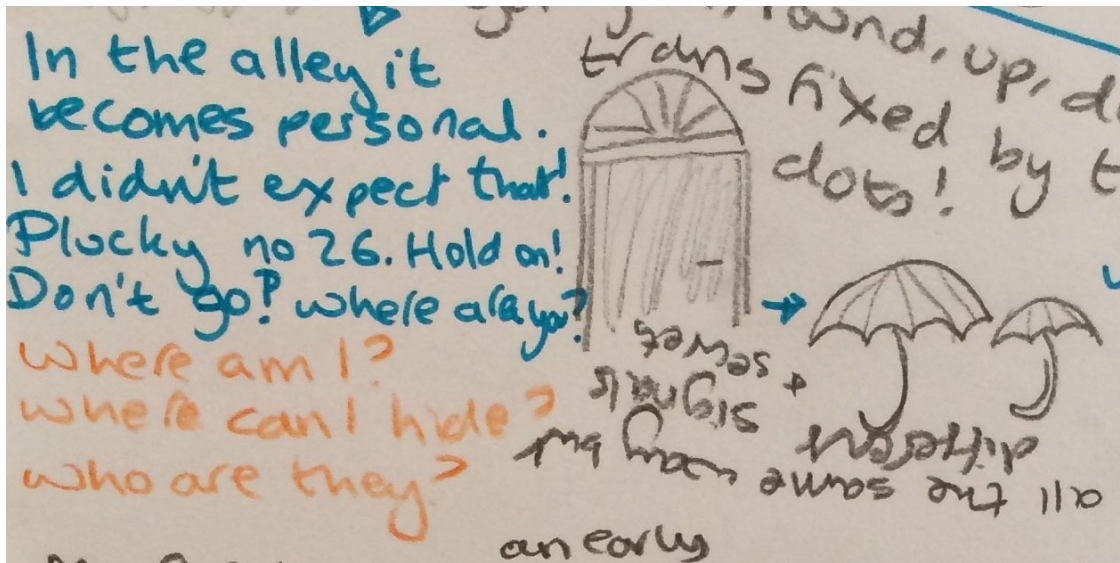 In the alley it
becomes personal.
I didn't expect that!
Plucky no 26. Hold on!
Don't go? where are you?
where am I?
where can I hide?
who are they?
round, up,
transfixed by
dots!
all the same but
different
signals
+ secret
an early